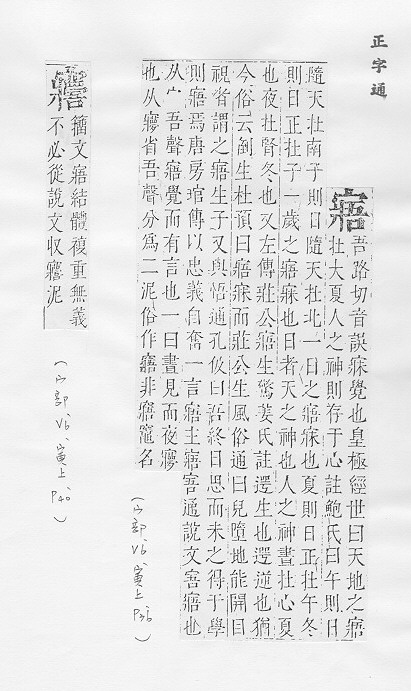 正字通
寤
吾路切音誤寐覺也皇極經世曰天地之寤
在大夏人之神則存于心註鮑氏曰午則日
隨天在南子則日隨天在北一日之寤寐也夏則日正在午冬
則日正在子一歲之寤寐也日者天之神也人之神晝在心夏
也夜在腎冬也又左傳莊公寤生驚姜氏註遻生也遻逆也猶
今俗云倒生杜預曰寤寐而莊公生風俗通曰兒墮地能開目
視者謂之寤生子又與悟通孔伋曰吾終日思而未之得于學
則寤焉唐房琯傳以忠義自奮一言寤主寤通說文寤也
从宀吾聲寤覺而有言也一曰晝見而夜㝱
也从㝱省吾聲分爲二泥俗作寤非竈名
(宀部、V6、寅上 P36)
籒文寤結體複重無義
不必從說文収泥
(宀部、V6、寅上 P40)